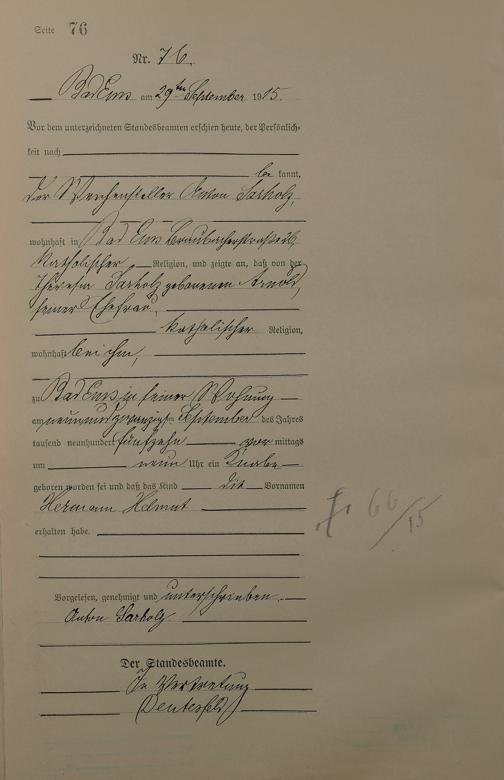 Seite 76
Nr. 76.
Bad Ems am 29ten September 1915.
Vor dem unterzeichneten Standesbeamten erschien heute, der Persönlich-
keit nach
be kannt,
der Weichensteller Anton Sarholz,
wohnhaft in Bad Ems Braubacherstraße
katholischer Religion, und zeigte an, daß von der
Theresia Sarholz geborenen Arnold,
seiner Ehefrau,
katholischer Religion,
wohnhaft bei ihm,
zu Bad Ems in seiner Wohnung
am neunundzwanzigsten September des Jahres
tausend neunhundert fünfzehn vor mittags
um neun Uhr ein Knabe
geboren worden sei und daß das Kind die Vornamen
Hermann Helmut
erhalten habe.
† 66/15
Vorgelesen, genehmigt und unterschrieben.
Anton Sarholz
Der Standesbeamte.
In Vertretung